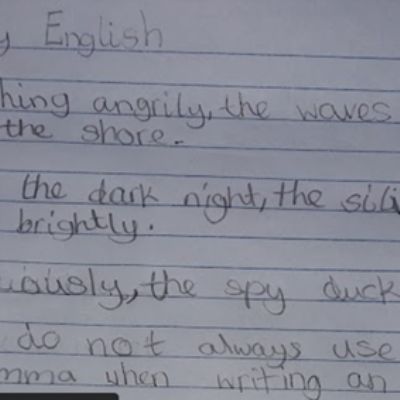 y English
hing angrily, the waves
the shore.
the dark night, the sili
brightly.
iously, the spy duck
do not always use
mma when writing an